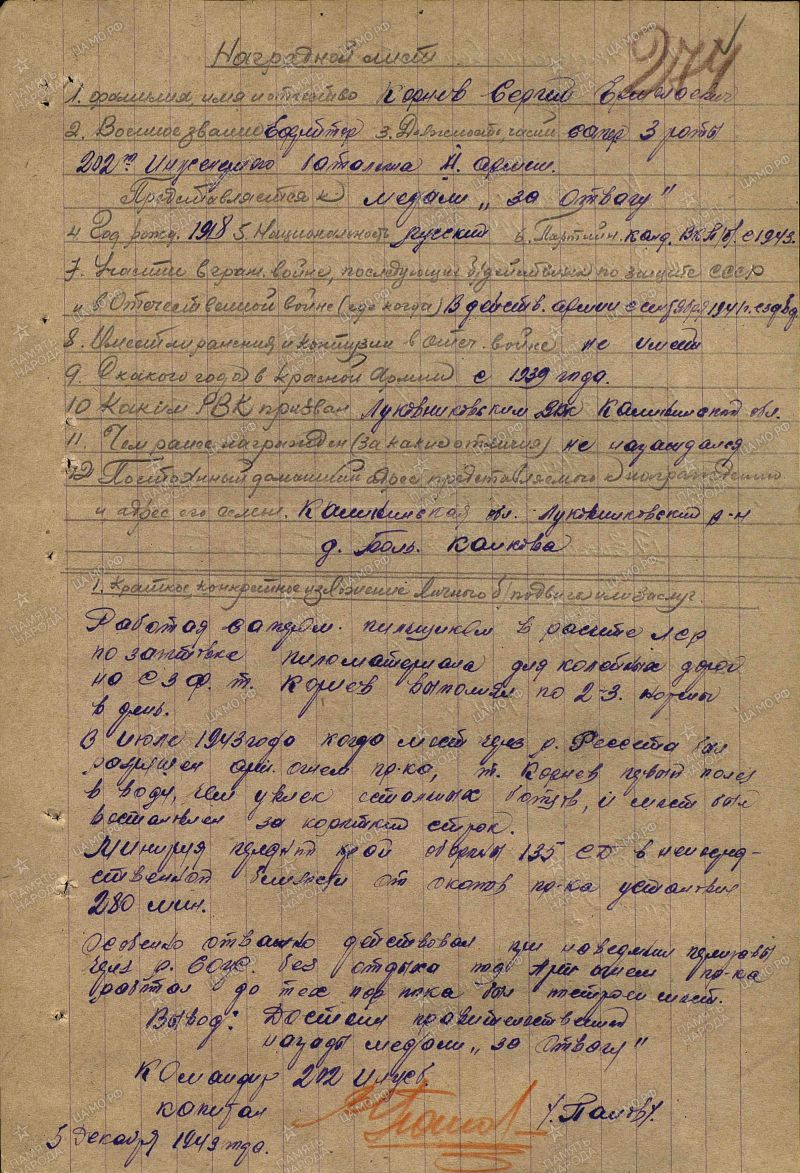 274
Наградной лист
1. Фамилия, имя и отчество Корнев Сергей Ермолаевич
2. Военное звание Ефрейтор 3. Должность, часть сапер 3 роты
202го Инженерного батальона армии.
Представляется к медали „за отвагу"
4 Год рожд. 1918 5. Национальность русский 6. Партийн. канд. ВКП(б). с 1943.
7. Участие в граж. войне, последующих б/действиях по защите СССР
и в Отечественной войне (где когда) В действ. армии с 1941г.
8. Имеет ли ранения и контузии в отеч. войне не имеет
9. С какого года в Красной Армии с 1939 года.
10 Каким РВК призван Луковниковским РВК Калининской обл.
11. Чем ранее награжден (за какие отличия) не награждался
12 Постоянный домашний адрес представляемого к награждению
и адрес его семьи. Калининская обл. Луковниковский р-н
д. Боль. Каикова
1. Краткое, конкретное изложение личного б/подвига или заслуг
Работая сапером. пильщиком в расчете ЛСР
по заготовке пиломатериала для колейных дорог
на С З Ф. т. Корнев выполнял по 2-3. нормы
в день.
В июле 1943 года когда мост через р. Рессета был
разрушен арт. огнем пр-ка, т. Корнев первый полез
в воду, чем увлек остальных бойцов, и мост был
востановлен за короткий строк.
Минируя передний край обороны 135 СД в непосред-
ственной близости от окопов пр-ка установил
280 мин.
Особенно отважно действовал при наведении переправы
через р. Сож. без отдыха под Арт огнем пр-ка
работал до тех пор пока был построен мост.
Вывод: Достоин правительственной
награды медали „за Отвагу"
Командир 202 Инжб.
капитан /.Панов/.
5 Декабря 1943 года.
ЦАМО.РФ
ПАМЯТЬ НАРОДА